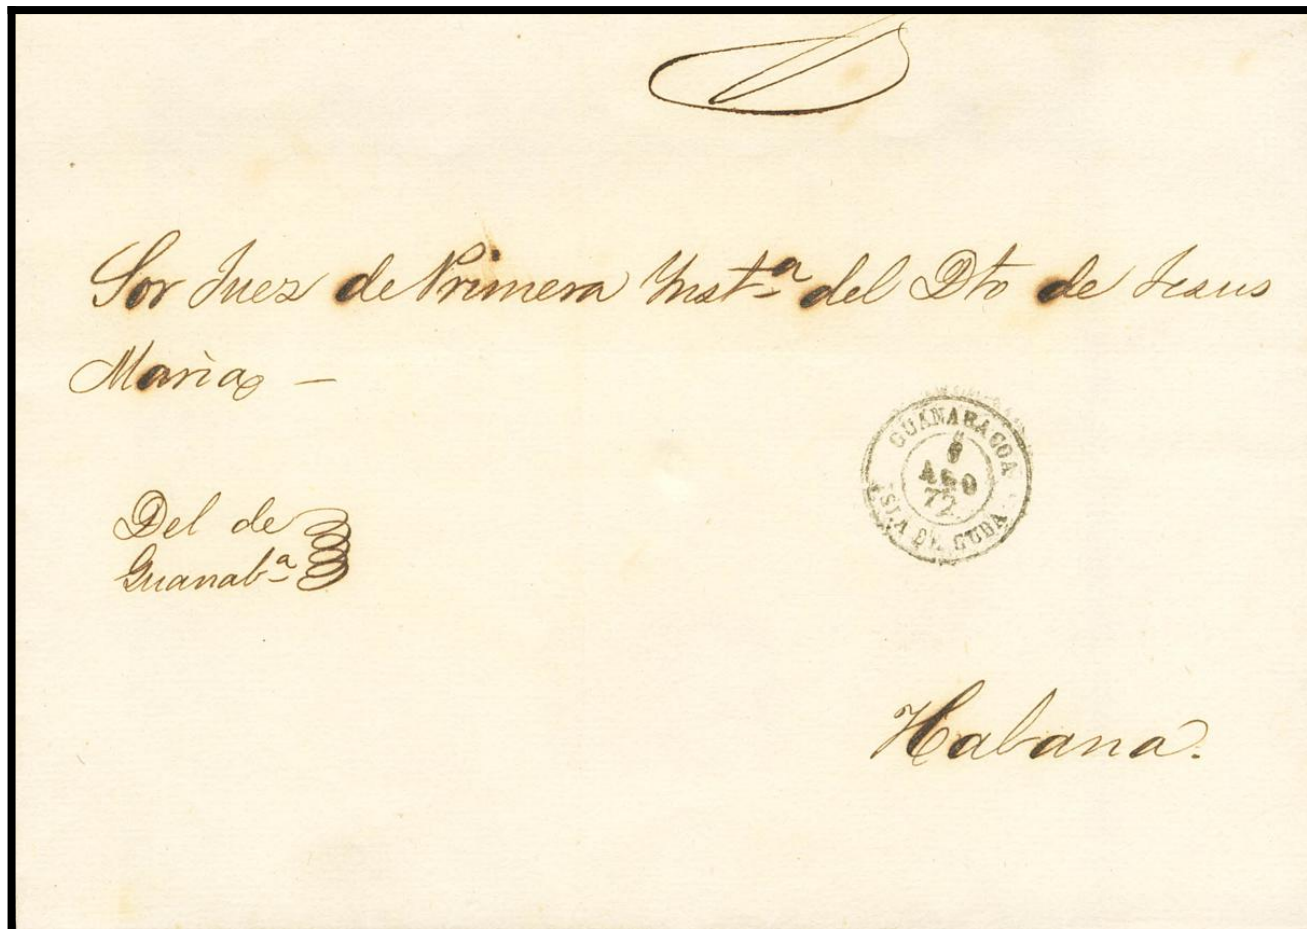 Sor Juez de Primera Ynst.ª del Dto de Jesus
Maria —
GUANABACOA
AGO
72
ISLA DE CUBA
Del de
Guanab.ª
Habana.